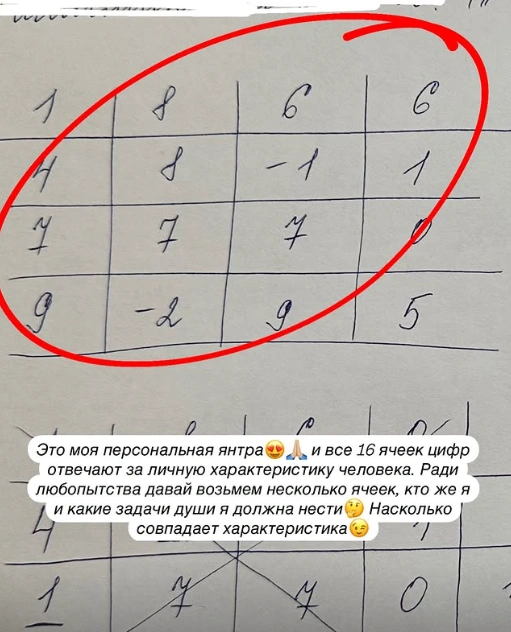 1 8 6 6
4 8 -1 1
7 7 7 0
9 -2 9 5
Это моя персональная янтра😍🙏🏼 и все 16 ячеек цифр
отвечают за личную характеристику человека. Ради
любопытства давай возьмем несколько ячеек, кто же я
и какие задачи души я должна нести🤔 Насколько
совпадает характеристика😉
4
1 7 7 0